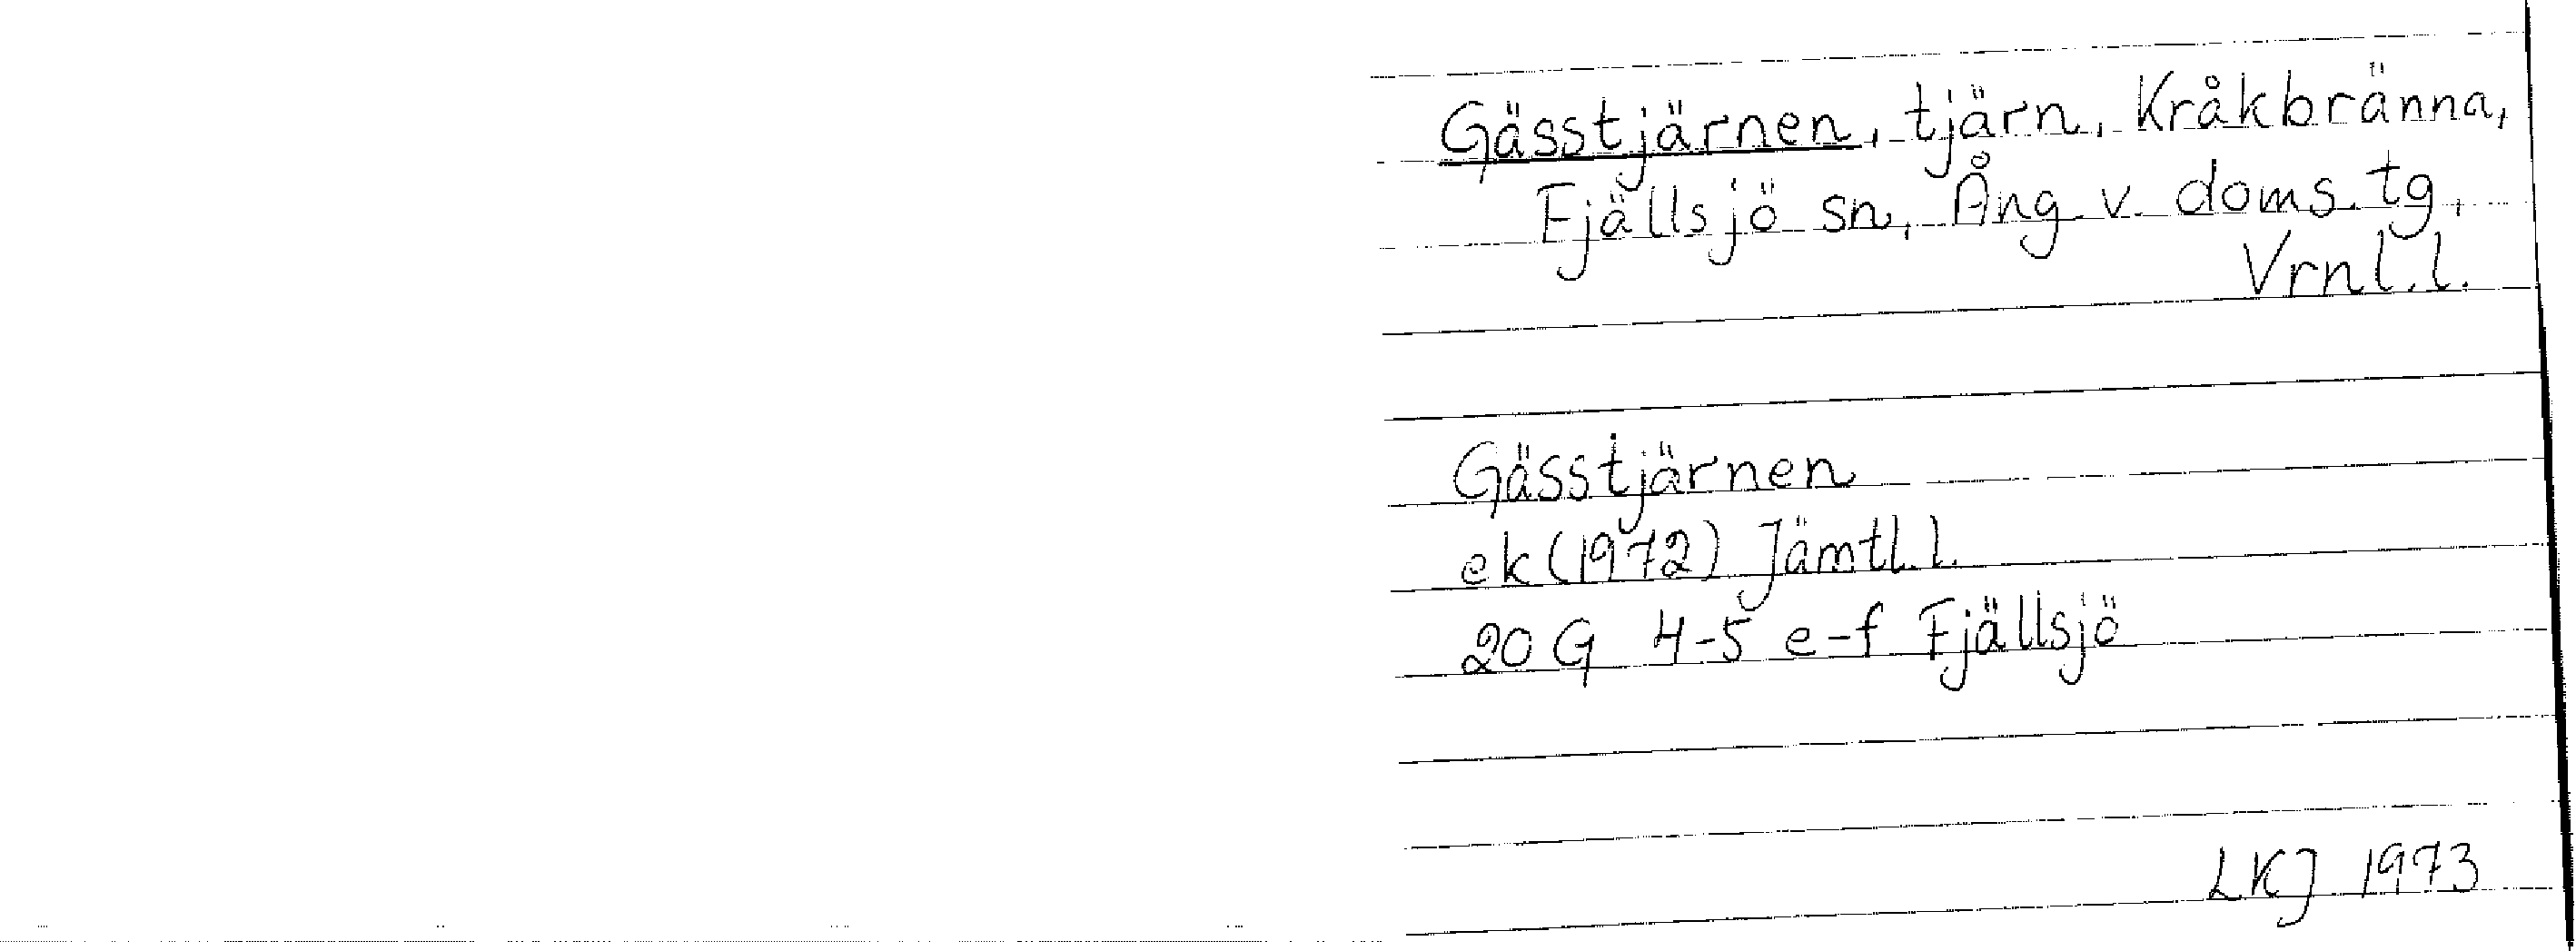 Gässtjärnen, tjärn, Kråkbränna,
Fjällsjö sn, Ång. v. doms. tg,
Vrnl.l.
Gässtjärnen
ek (1972) Jämtl.l.
20 G 4-5 e-f Fjällsjö
LKJ 1973